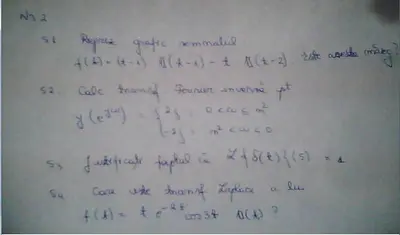 Nr 2
S1 Repez grafic semnalul
f(t) = (t-1) U(t-1) - t U(t-2)
S2. Calc transf Fourier inversă pt
y(e^jω) = { 2j = 0 < ω ≤ π
{ -2j = π < ω ≤ 0
S3 Justificați faptul că L{δ(t)}(s) = 1
S4 Care este transf Laplace a lui
f(t) = t e^-2t cos3t U(t) ?